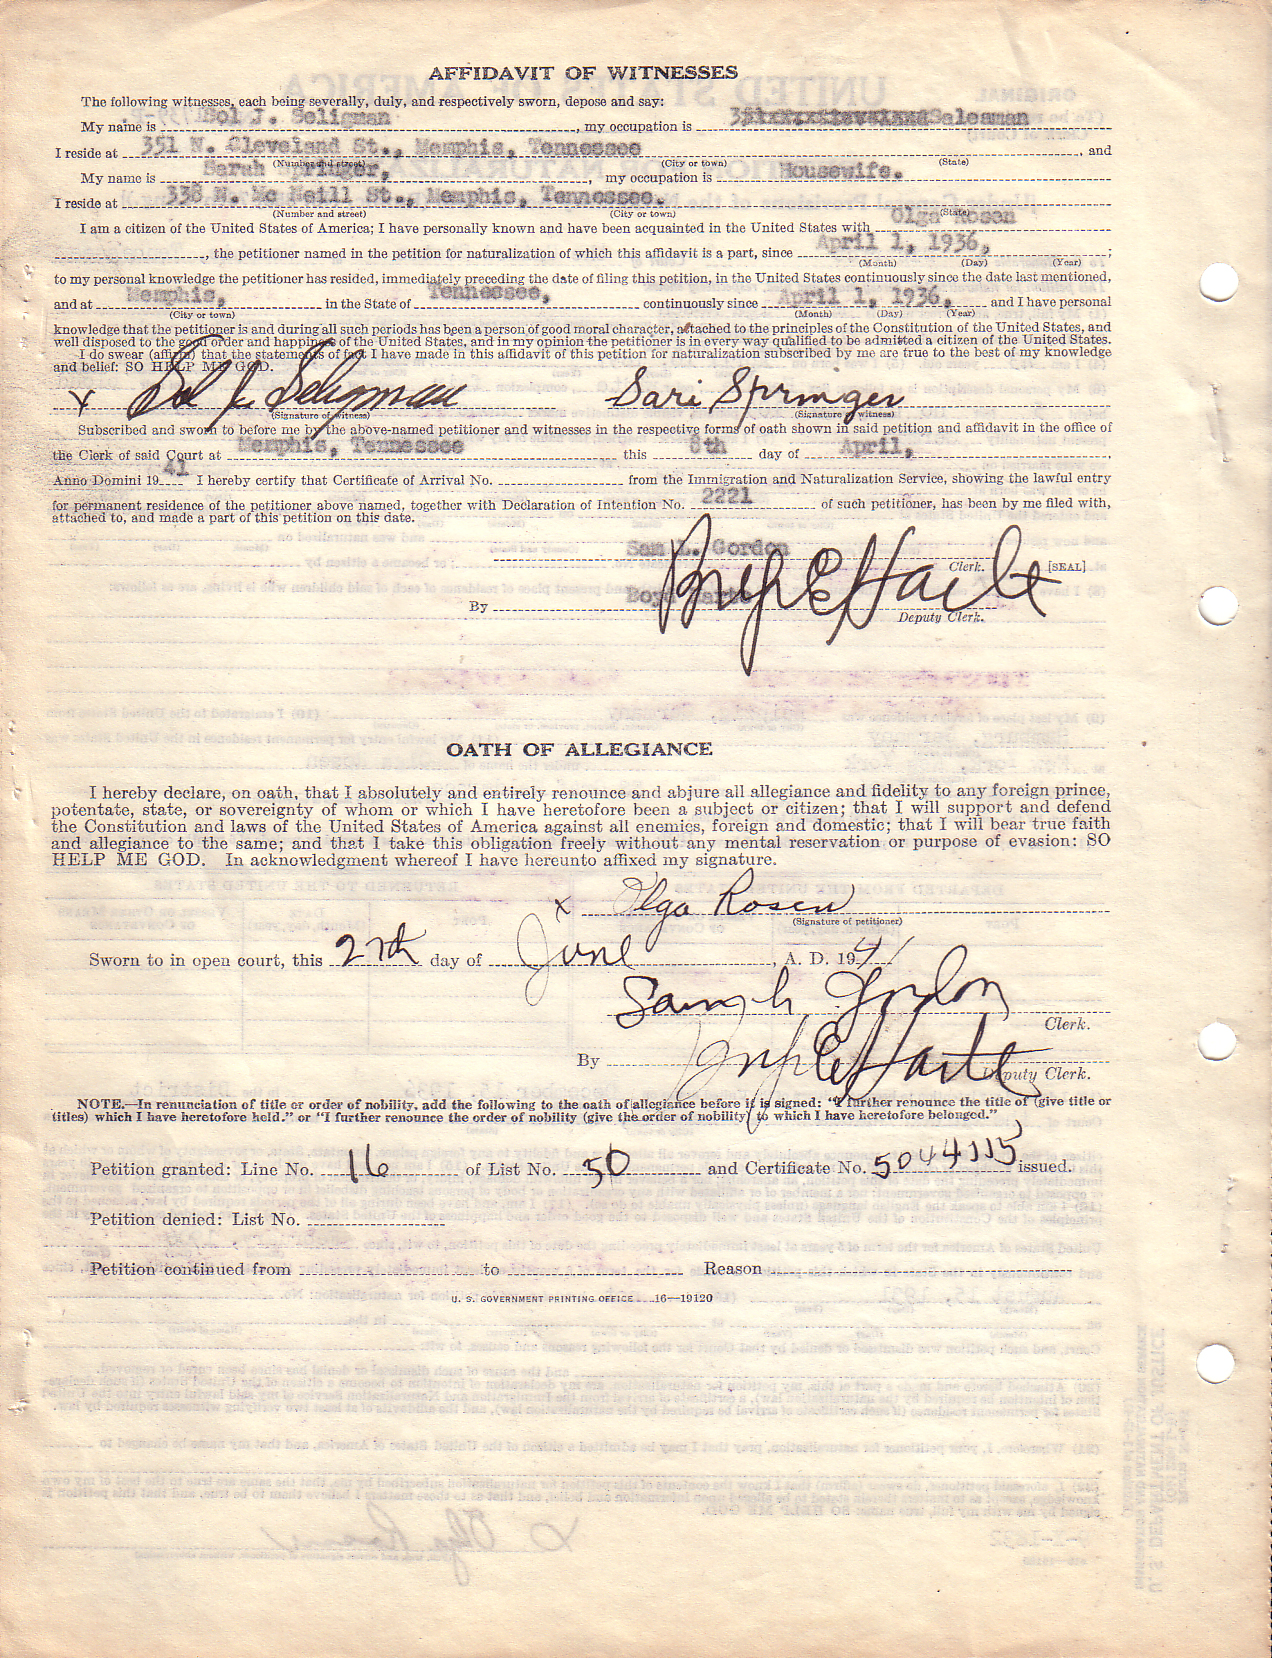 AFFIDAVIT OF WITNESSES
The following witnesses, each being severally, duly, and respectively sworn, depose and say:
My name is Sol J. Seligman, my occupation is Salesman
I reside at 351 N. Cleveland St., Memphis, Tennessee, and
(Number and street) (City or town) (State)
My name is Sarah Springer, my occupation is Housewife.
I reside at 338 N. Mc Neill St., Memphis, Tennessee.
(Number and street) (City or town) (State)
I am a citizen of the United States of America; I have personally known and have been acquainted in the United States with Olga Rosen
, the petitioner named in the petition for naturalization of which this affidavit is a part, since April 1, 1936, ;
(Month) (Day) (Year)
to my personal knowledge the petitioner has resided, immediately preceding the date of filing this petition, in the United States continuously since the date last mentioned,
and at Memphis, in the State of Tennessee, continuously since April 1, 1936, and I have personal
(City or town) (Month) (Day) (Year)
knowledge that the petitioner is and during all such periods has been a person of good moral character, attached to the principles of the Constitution of the United States, and
well disposed to the good order and happiness of the United States, and in my opinion the petitioner is in every way qualified to be admitted a citizen of the United States.
I do swear (affirm) that the statements of fact I have made in this affidavit of this petition for naturalization subscribed by me are true to the best of my knowledge
and belief: SO HELP ME GOD.
x Sol J. Seligman Sari Springer
(Signature of witness) (Signature of witness)
Subscribed and sworn to before me by the above-named petitioner and witnesses in the respective forms of oath shown in said petition and affidavit in the office of
the Clerk of said Court at Memphis, Tennessee this 8th day of April,
Anno Domini 1941 I hereby certify that Certificate of Arrival No. from the Immigration and Naturalization Service, showing the lawful entry
for permanent residence of the petitioner above named, together with Declaration of Intention No. 2221 of such petitioner, has been by me filed with,
attached to, and made a part of this petition on this date.
Sam L. Gordon
Clerk. [SEAL]
By Boyd Harte
Deputy Clerk.
OATH OF ALLEGIANCE
I hereby declare, on oath, that I absolutely and entirely renounce and abjure all allegiance and fidelity to any foreign prince,
potentate, state, or sovereignty of whom or which I have heretofore been a subject or citizen; that I will support and defend
the Constitution and laws of the United States of America against all enemies, foreign and domestic; that I will bear true faith
and allegiance to the same; and that I take this obligation freely without any mental reservation or purpose of evasion: SO
HELP ME GOD. In acknowledgment whereof I have hereunto affixed my signature.
x Olga Rosen
(Signature of petitioner)
Sworn to in open court, this 27th day of June, A. D. 1941
Sam L. Gordon
Clerk.
By
Deputy Clerk.
NOTE.—In renunciation of title or order of nobility, add the following to the oath of allegiance before it is signed: "I further renounce the title of (give title or
titles) which I have heretofore held." or "I further renounce the order of nobility (give the order of nobility) to which I have heretofore belonged."
Petition granted: Line No. 16 of List No. 50 and Certificate No. 5044115 issued.
Petition denied: List No.
Petition continued from to Reason
U. S. GOVERNMENT PRINTING OFFICE 16—19120